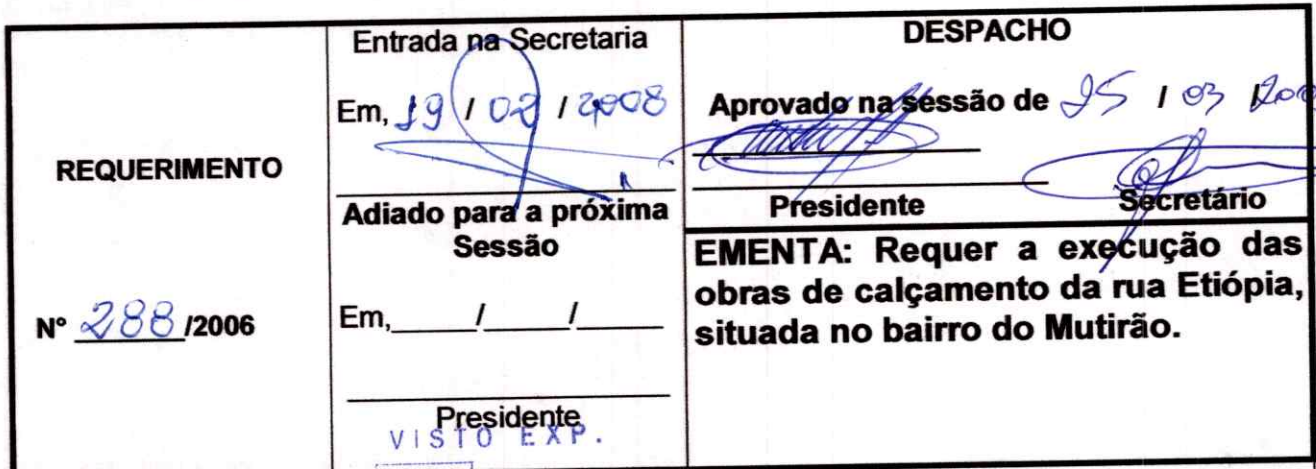 REQUERIMENTO
Nº 288 /2006
Entrada na Secretaria
Em, 19 / 02 / 2008
Adiado para a próxima
Sessão
Em,_____/_____/_____
Presidente
VISTO EXP.
DESPACHO
Aprovado na sessão de 25 / 03 /
Presidente Secretário
EMENTA: Requer a execução das
obras de calçamento da rua Etiópia,
situada no bairro do Mutirão.